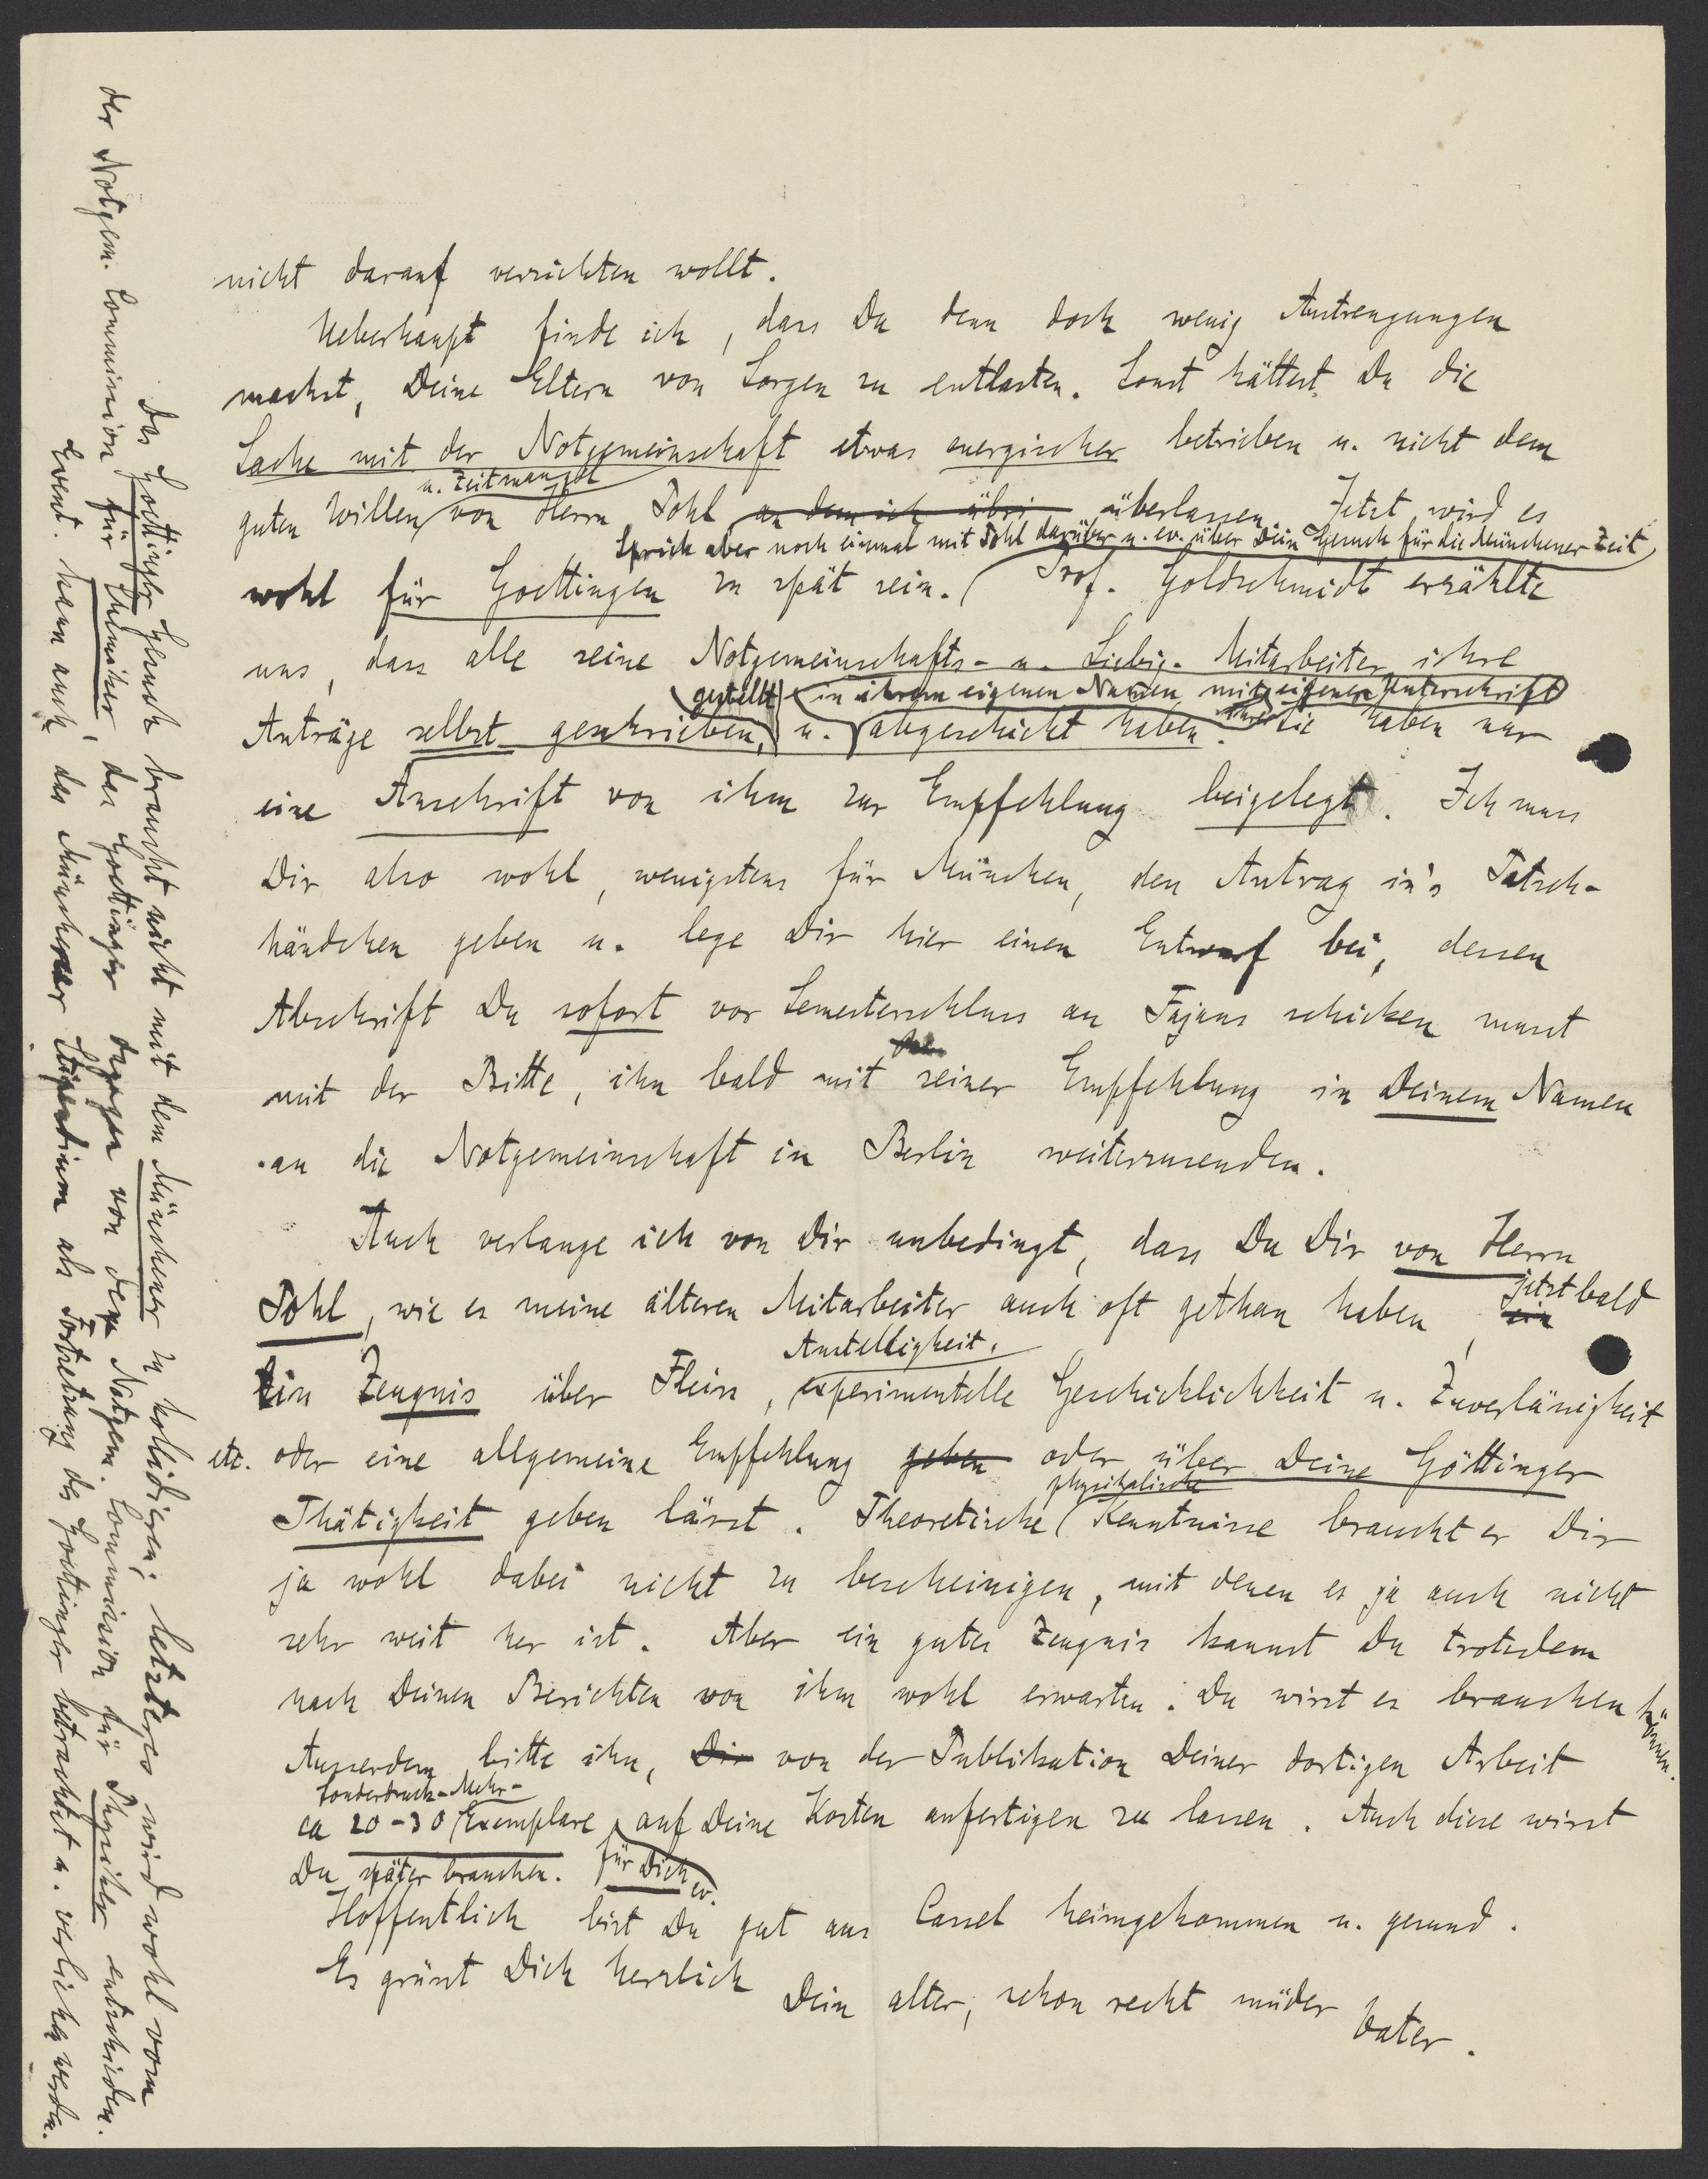 nicht darauf verzichten wollt.
Ueberhaupt finde ich, dass Du denn doch wenig Anstrengungen
machst, Deine Eltern von Sorgen zu entlasten. Sonst hättest Du die
Sache mit der Notgemeinschaft etwas energischer betrieben u. nicht dem
u. Zeitmangel
guten Willen von Herrn Pohl an dem ich übri überlassen. Jetzt wird es
Sprich aber noch einmal mit Pohl darüber u. ev. über Dein Gesuch für die Münchener Zeit
wohl für Goettingen zu spät sein. Prof. Goldschmidt erzählte
uns, dass alle seine Notgemeinschafts- u. Liebig-Mitarbeiter ihre
gestellt in ihrem eigenen Namen, mit eigener Unterschrift
Anträge selbst geschrieben, u. abgeschickt haben. Sie haben nur
eine Anschrift von ihm zur Empfehlung beigelegt. Ich muss
Dir also wohl, wenigstens für München, den Antrag in's Patsch-
händchen geben u. lege Dir hier einen Entwurf bei, dessen
Abschrift Du sofort vor Semesterschluss an Fajans schicken musst
mit der Bitte, ihn bald mit seiner Empfehlung in Deinem Namen
an die Notgemeinschaft in Berlin weiterzusenden.
Auch verlange ich von Dir unbedingt, dass Du Dir von Herrn
Pohl, wie es meine älteren Mitarbeiter auch oft gethan haben, ein jetzt bald
Anstelligkeit,
Ein Zeugnis über Fleiss, experimentelle Geschicklichkeit u. Zuverlässigkeit
etc. oder eine allgemeine Empfehlung geben oder über Deine Göttinger
physikalische
Thätigkeit geben lässt. Theoretische Kenntnisse braucht er Dir
ja wohl dabei nicht zu bescheinigen, mit denen es ja auch nicht
sehr weit her ist. Aber ein gutes Zeugnis kannst Du trotzdem
nach Deinen Berichten von ihm wohl erwarten. Du wirst es brauchen können.
Ausserdem bitte ihn, Dir von der Publikation Deiner dortigen Arbeit
Sonderdruck-Mehr-
ca 20-30 Exemplare auf Deine Kosten anfertigen zu lassen. Auch diese wirst
Du später brauchen. für Dich ev.
Hoffentlich bist Du gut aus Cassel heimgekommen u. gesund.
Es grüsst Dich herzlich
Dein alter, schon recht müder
Vater.
Das Goettinger Gesuch braucht nicht mit dem Münchener zu kollidieren; letzteres wird wohl vom
der Notgem. Commission für Chemiker, das Goettinger dagegen von der Notgem. Commission für Physiker entschieden.
Event. kann auch das Münchener Stipendium als Fortsetzung des Goettinger betrachtet u. verliehen werden.